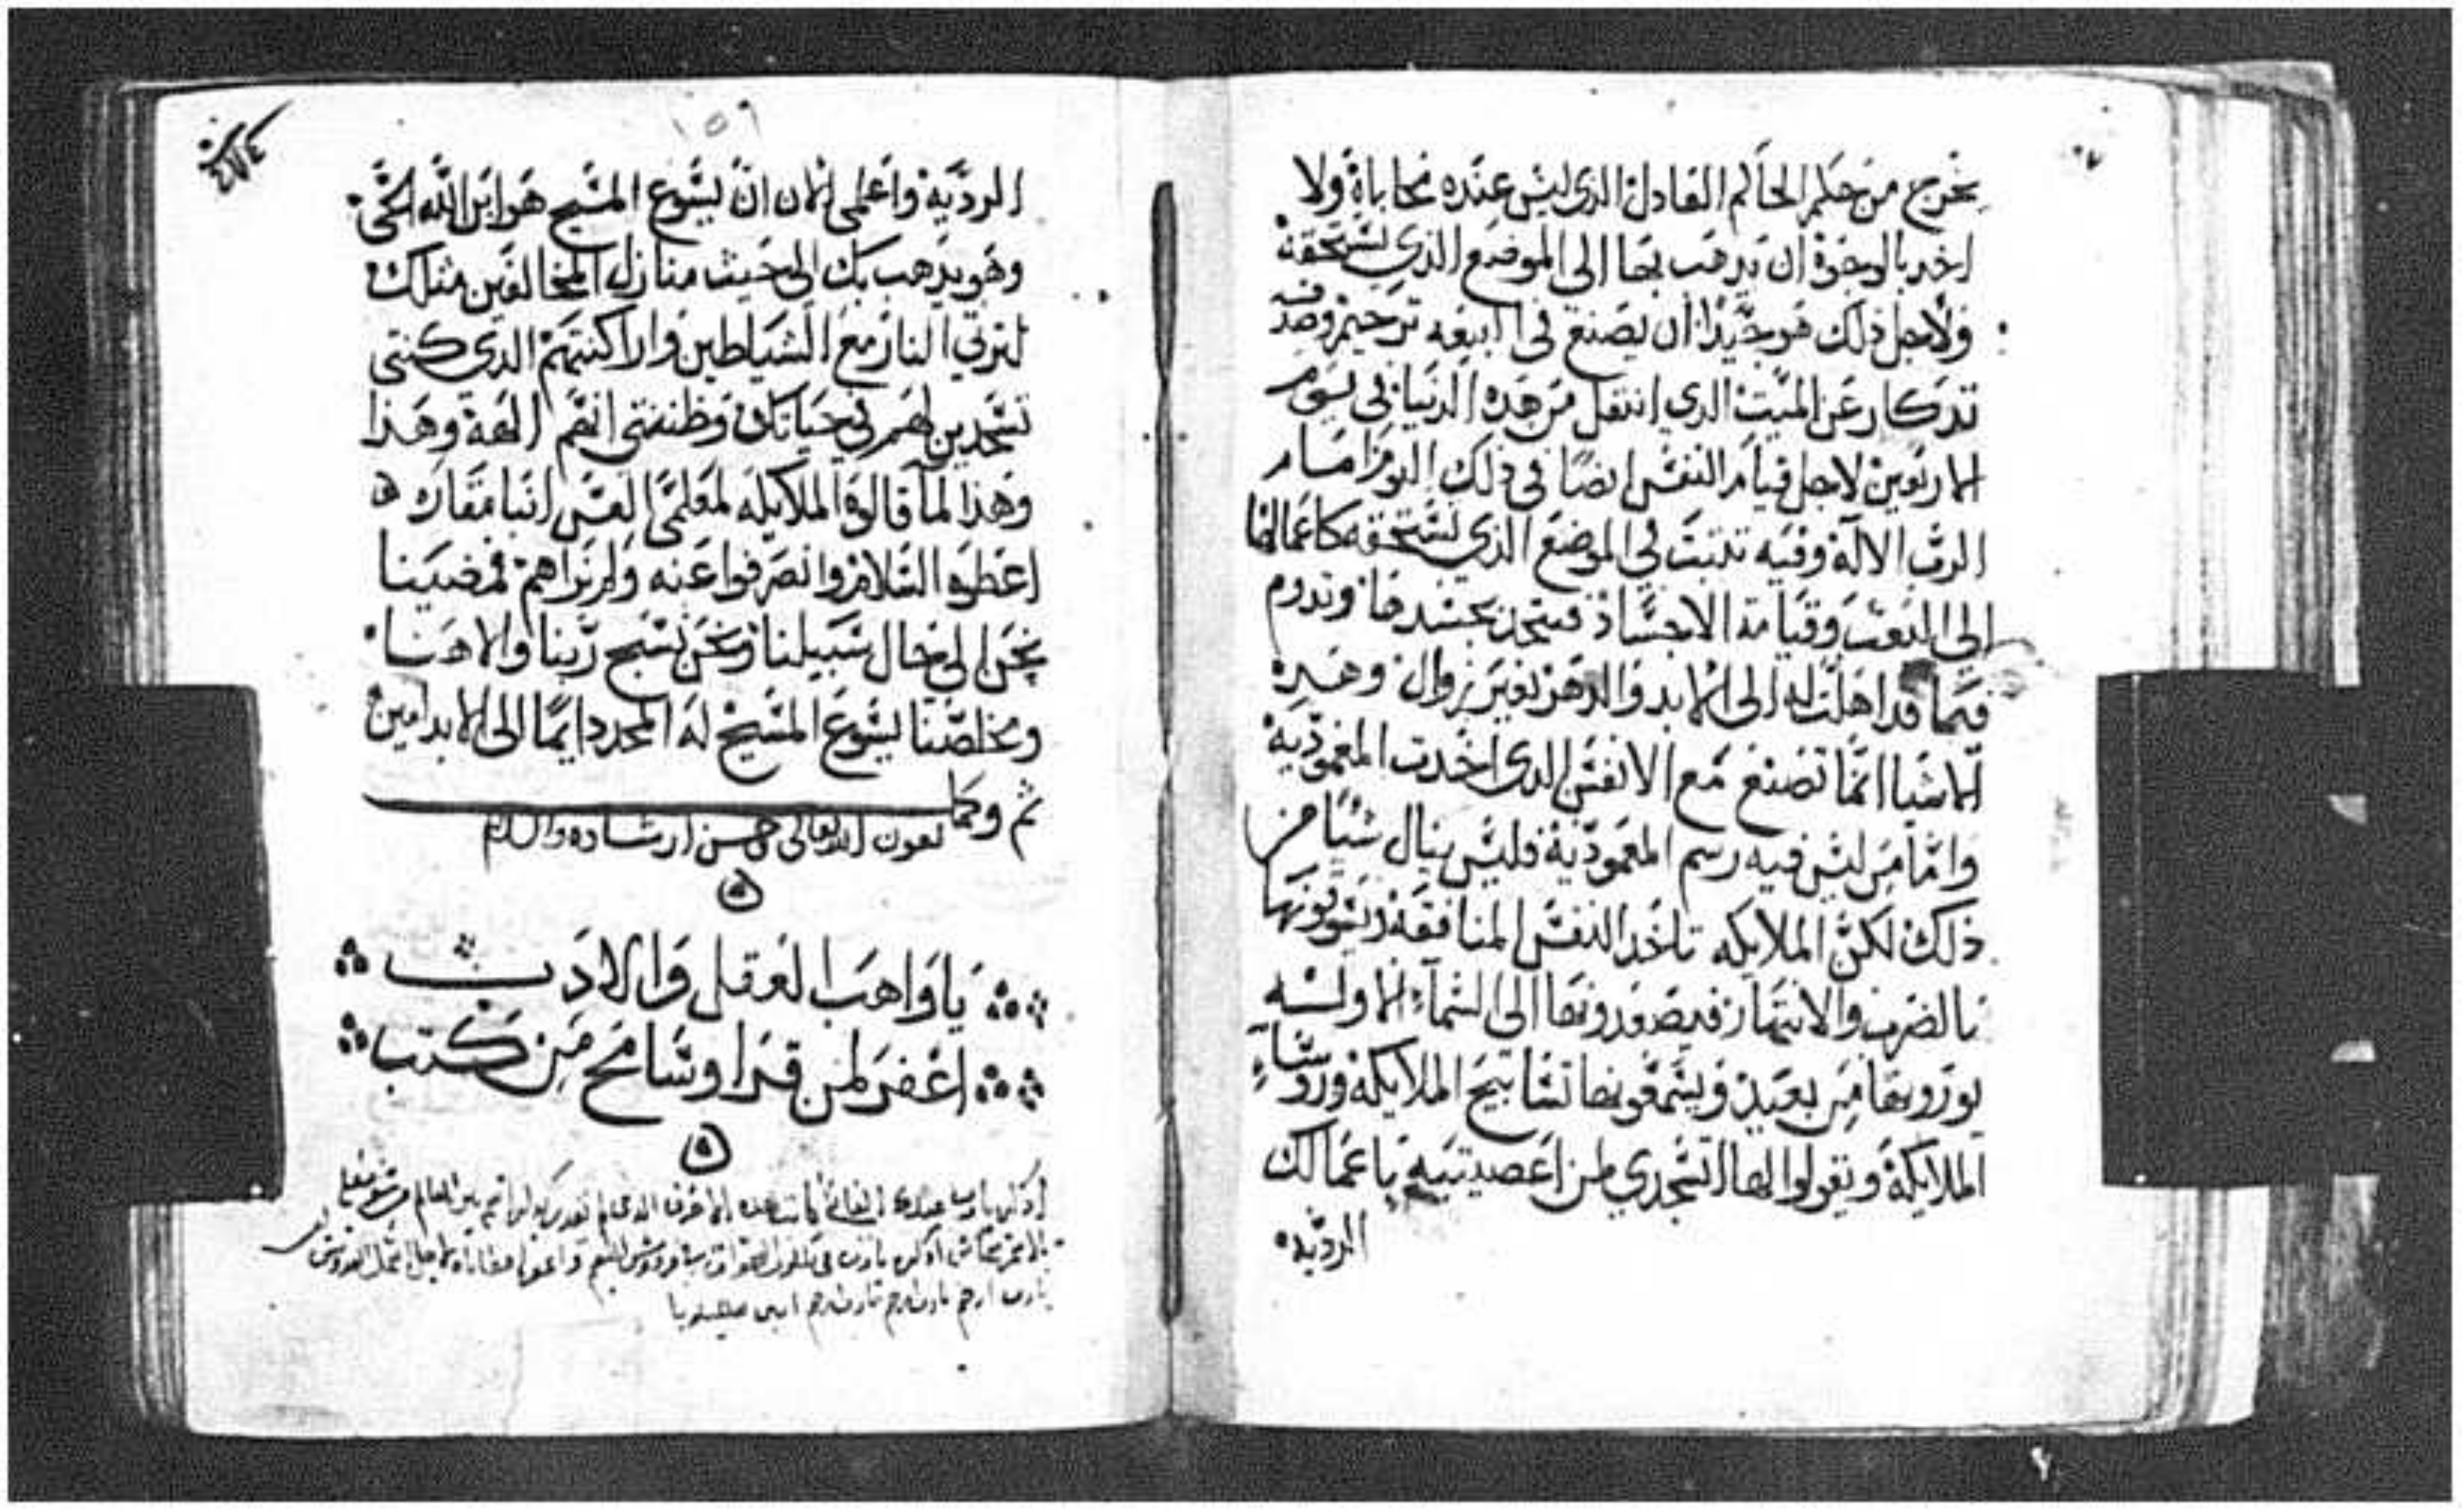 يخرج من حكم الحاكم العادل الذي ليس عنده محاباة ولا
اخد بالوجوة ان تدهب بها الى الموضع الذي تستحقه
ولاجل ذلك هو جيدا ان يصنع في البيعه ترحيم وصدقه
تدكار عن الميت الدي انتقل من هده الدنيا في يوم
الاربعين لاجل قيام النفس ايضا في ذلك اليوم امام
الرب الالاة وفيه تتبت في الموضع الذي تستحقه كاعمالها
الى البعت وقيامة الاجساد فتتحد بجسدها وتدوم
فيما قد اهلت له الى الابد والدهر بغير زوال وهده
الاشيا انما تصنع مع الانفس الدي اخدت المعمودية
واما من ليس فيه رسم المعمودية فليس ينال شيا من
ذلك لكن الملايكه تاخد النفس المنافقة ويسوقونها
بالضرب والانتهار فيصعدونها الى السماء الاوله
يورونها من بعيد ويسمعونها تسابيح الملايكة وروساء
الملايكة ويقولوا لها اتسجدي لمن اعصيتيه باعمالك
الرديه
١٥٩
الردية واعلمي الان ان يسوع المسيح هو ابن الله الحي
وهو يدهب بك الى حيث منازل المخالفين متلك
لترتي النار مع الشياطين واراكنتهم الدي كنتي
تسجدين لهم في حياتك وظننتي انهم الهة وهذا
وهذا لما قالوة الملايكه لمعلمي القس انبا مقاره
اعطوه السلام وانصرفوا عنه ولم نراهم فمضينا
نحن الى حال سبيلنا ونحن نسبح ربنا والاهنا
ومخلصنا يسوع المسيح له المجد دايما الى الابد امين
تم وكمل
بعون الله تعالى وحسن ارشاده والسلام
يا واهب العقل والادب
اغفر لمن قرا وسامح من كتب
يارب ارحم يارب ارحم يارب ارحم